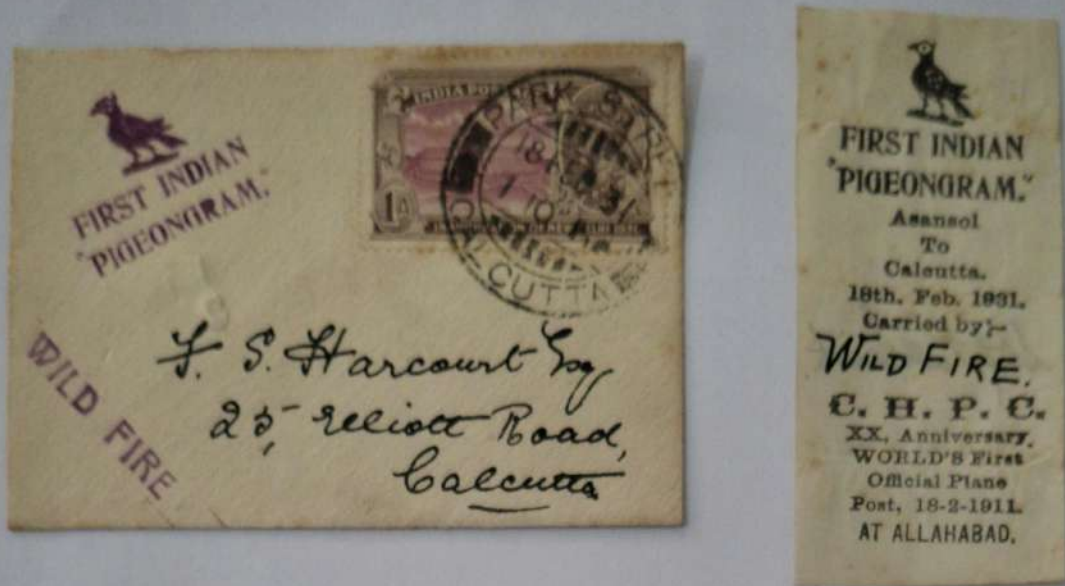 FIRST INDIAN
"PIGEONGRAM."
WILD FIRE
INDIA POSTAGE
1A
PARK STREET
18 FEB 31
CALCUTTA
F. S. Harcourt Esq
25, Elliott Road,
Calcutta
FIRST INDIAN
"PIGEONGRAM."
Asansol
To
Calcutta.
18th. Feb. 1931.
Carried by:-
WILD FIRE.
C. H. P. C.
XX, Anniversary.
WORLD'S First
Official Plane
Post, 18-2-1911.
AT ALLAHABAD.